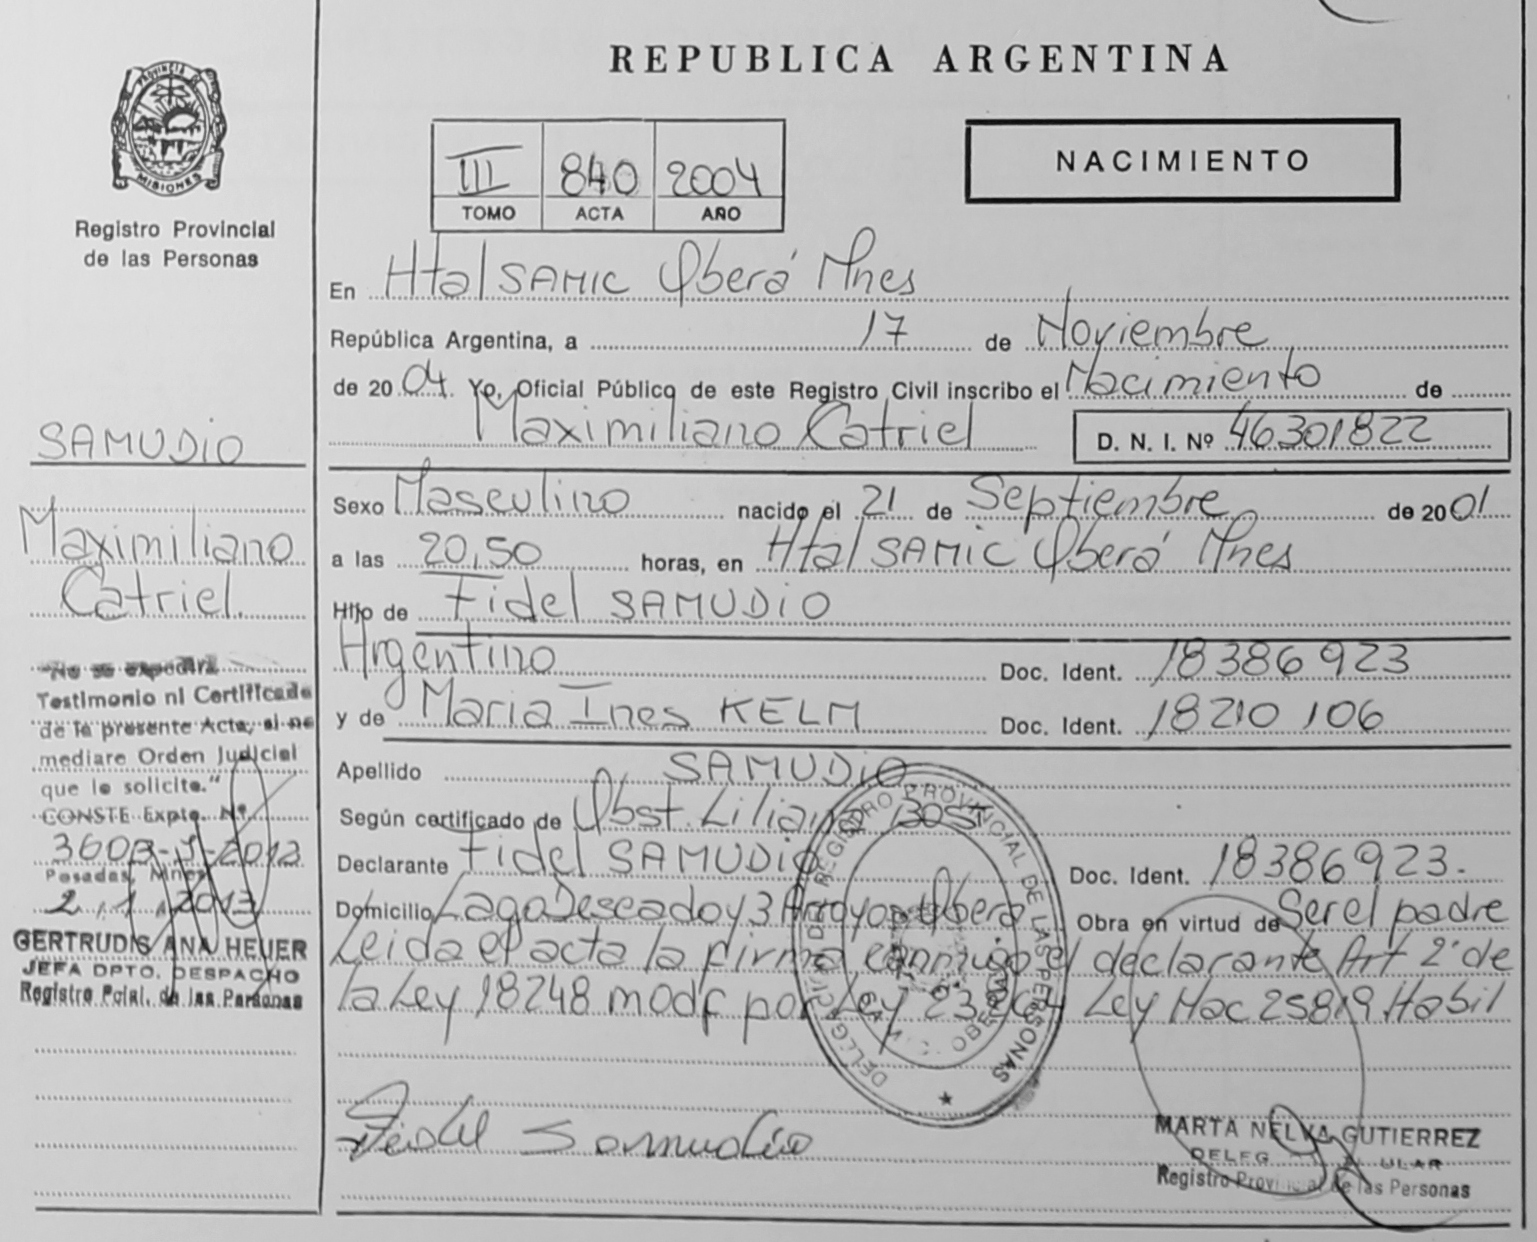 REPUBLICA ARGENTINA
PROVINCIA DE
MISIONES
Registro Provincial
de las Personas
III 840 2004
TOMO ACTA AÑO
NACIMIENTO
En Htal SAMIC Oberá Mnes
República Argentina, a 17 de Noviembre
de 2004. Yo, Oficial Público de este Registro Civil inscribo el Nacimiento de
Maximiliano Catriel D. N. I. Nº 46301822
Sexo Masculino nacido el 21 de Septiembre de 2001
a las 20,50 horas, en Htal SAMIC Oberá Mnes
Hijo de Fidel SAMUDIO
Argentino Doc. Ident. 18386923
y de Maria Ines KELM Doc. Ident. 18210106
Apellido SAMUDIO
Según certificado de Obst. Liliana BOST
Declarante Fidel SAMUDIO Doc. Ident. 18386923.
Domicilio Lago Deseado y 3 Arroyos Oberá Obra en virtud de Ser el padre
Leida el acta la firma conmigo el declarante Art 2º de
la Ley 18248 modf por Ley Ley Nac 25819 Habil
Fidel Samudio
MARTA NELVA GUTIERREZ
Registro Provincial de las Personas
DELEGACION DEL REGISTRO PROVINCIAL DE LAS PERSONAS
OBERA
SAMUDIO
Maximiliano
Catriel.
"No se expedirá
Testimonio ni Certificado
de la presente Acta, si no
mediare Orden Judicial
que lo solicite."
CONSTE Expte. Nº
2013
Posadas, Mnes
2.1.2013
GERTRUDIS ANA HEUER
JEFA DPTO. DESPACHO
Registro Pcial. de las Personas